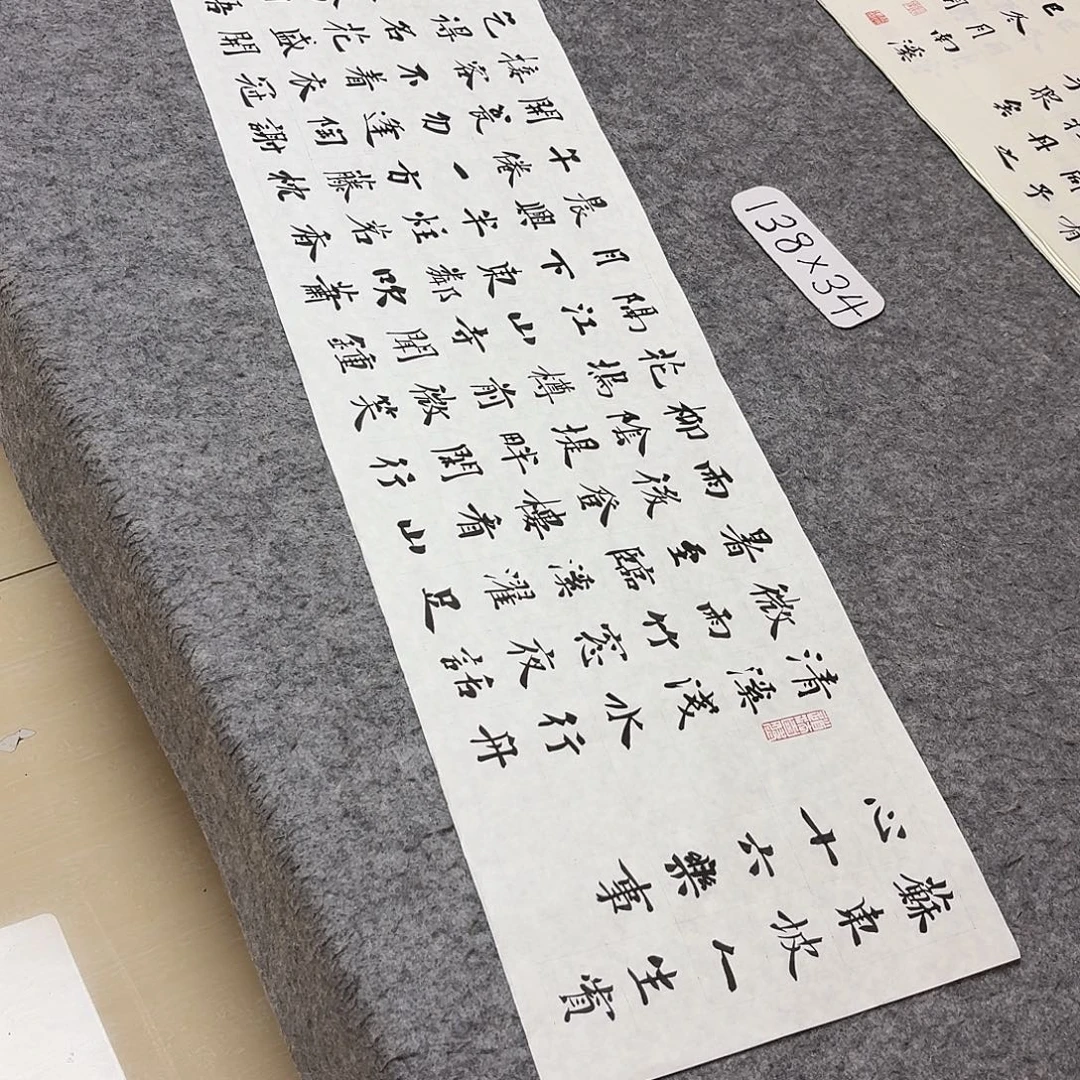 蘇東坡人生賞
心十六樂事
清溪淺水行舟
微雨竹窓夜話
暑至臨溪濯足
雨後登樓看山
柳陰堤畔閒行
花塢樽前微笑
隔江山寺聞鐘
月下東鄰吹簫
晨興半炷茗香
午倦一方藤枕
開甕勿逢陶謝
接客不着衣冠
乞得名花盛開
138×34